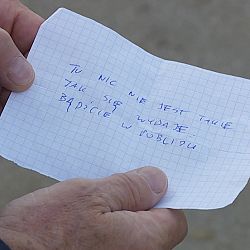 TU NIC NIE JEST TAKIE
JAK SIĘ WYDAJE...
BĄDŹCIE W POBLIŻU